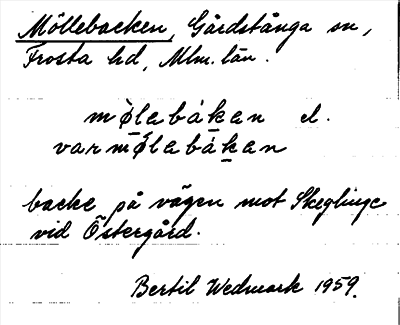 Möllebacken, Gårdstånga sn,
Frosta hd, Mlm. län.
mǿlebákan el.
varmǿlebákan
backe på vägen mot Skeglinge
vid Östergård.
Bertil Wedmark 1959.